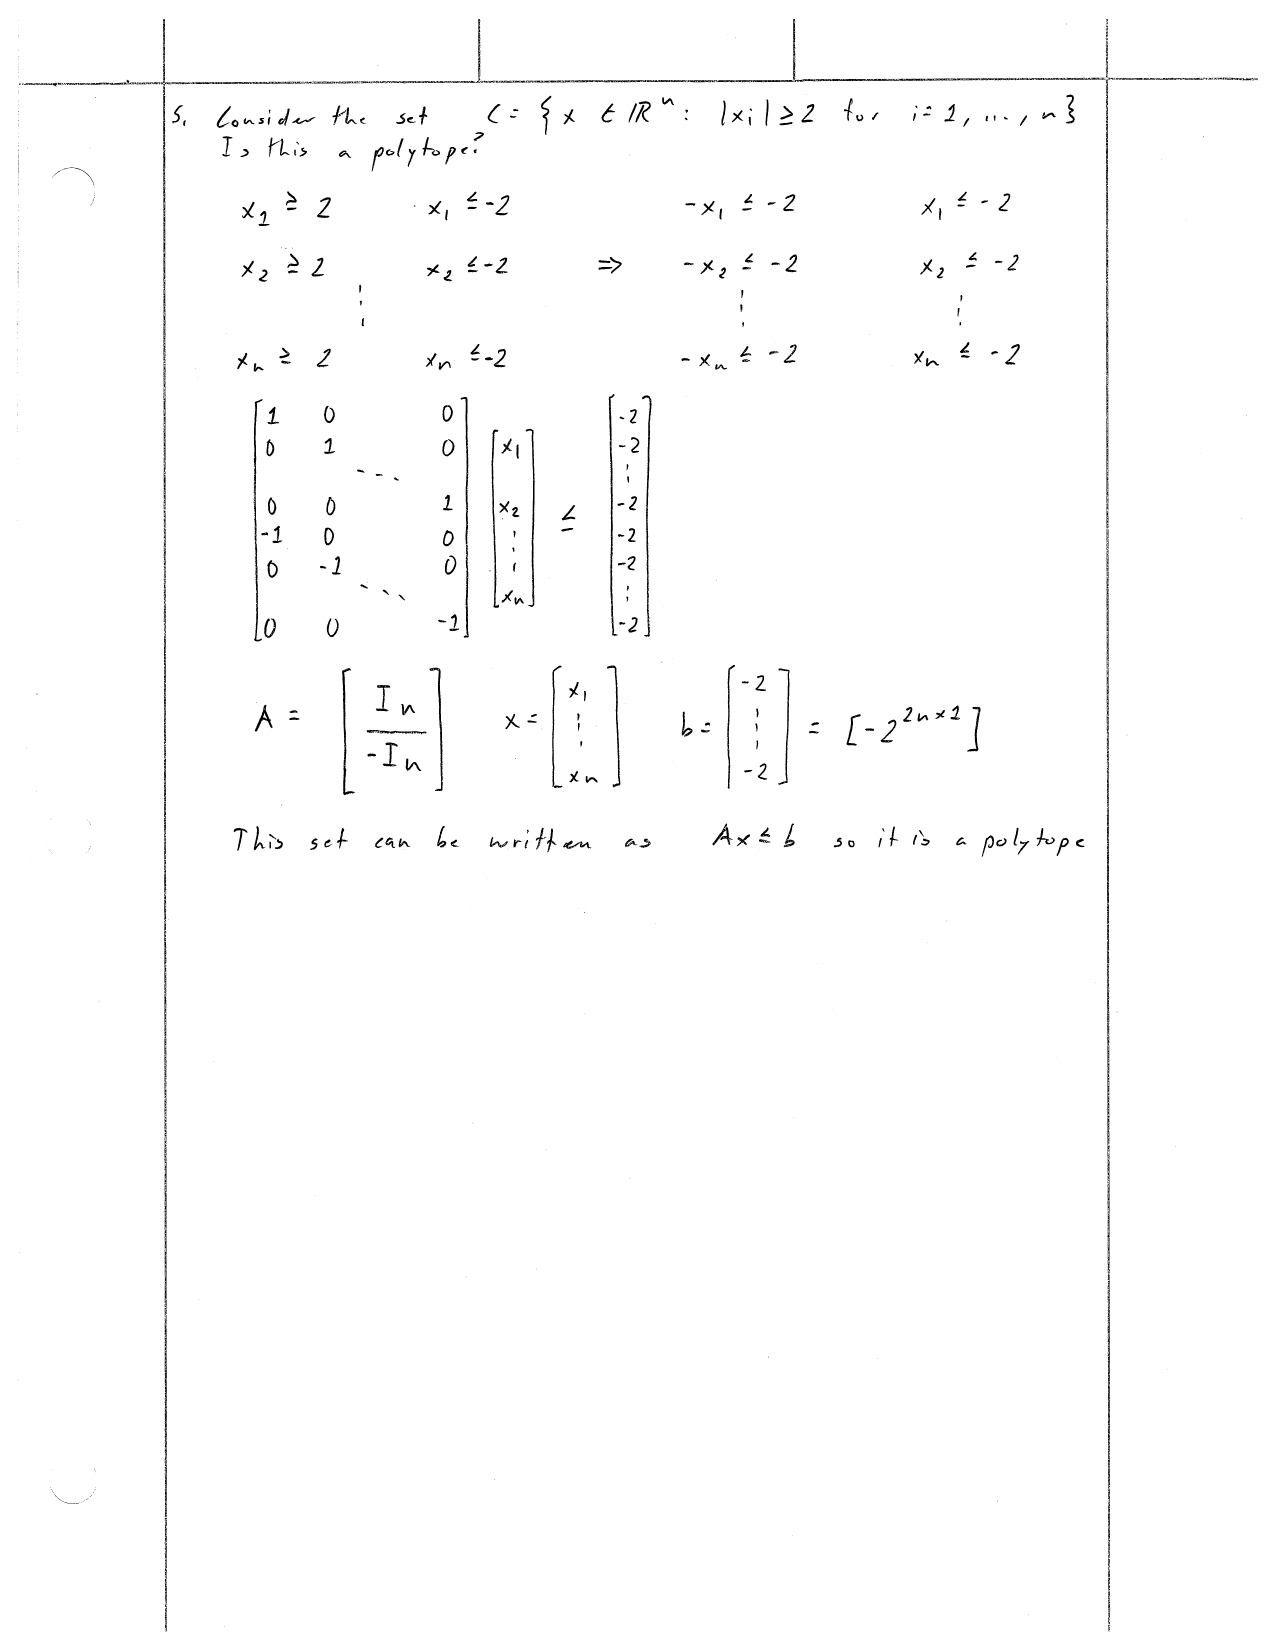 5. Consider the set C = { x ∈ ℝⁿ : |xi| ≥ 2 for i = 1, ..., n}
Is this a polytope?
x₁ ≥ 2 x₁ ≤ -2 -x₁ ≤ -2 x₁ ≤ -2
x₂ ≥ 2 x₂ ≤ -2 ⇒ -x₂ ≤ -2 x₂ ≤ -2
⋮ ⋮ ⋮
xₙ ≥ 2 xₙ ≤ -2 -xₙ ≤ -2 xₙ ≤ -2
[1 0 0] [-2]
[0 1 0] [x₁] [-2]
⋱ ⋮
[0 0 1] [x₂] ≤ [-2]
[-1 0 0] ⋮ [-2]
[0 -1 0] [-2]
⋱ [xₙ] ⋮
[0 0 -1] [-2]
A = [Iₙ / -Iₙ] x = [x₁ ⋮ xₙ] b = [-2 ⋮ -2] = [-2²ⁿˣ¹]
This set can be written as Ax ≤ b so it is a polytope